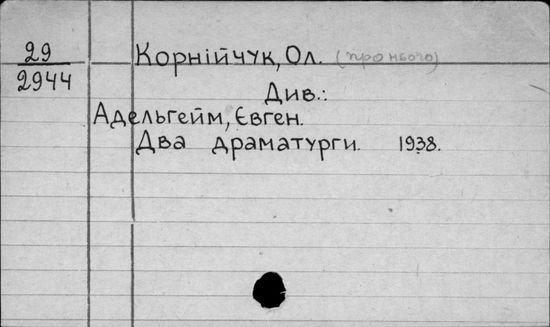 29
2944
Корнійчук, Ол. (про нього)
Див.:
Адельгейм, Євген.
Два драматурги. 1938.